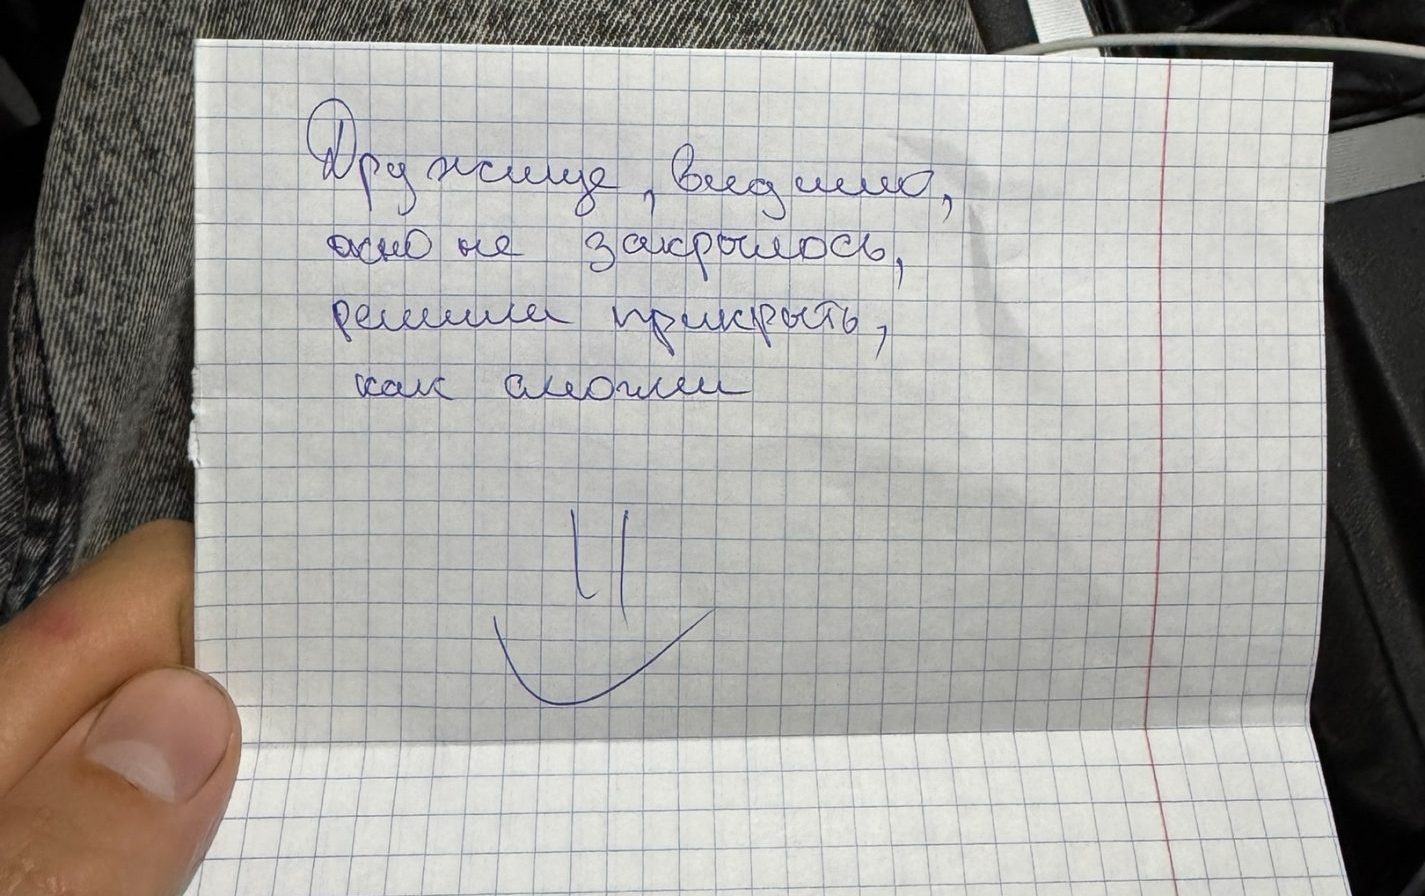 Дружище, видимо,
окно не закрылось,
решили прикрыть,
как смогли